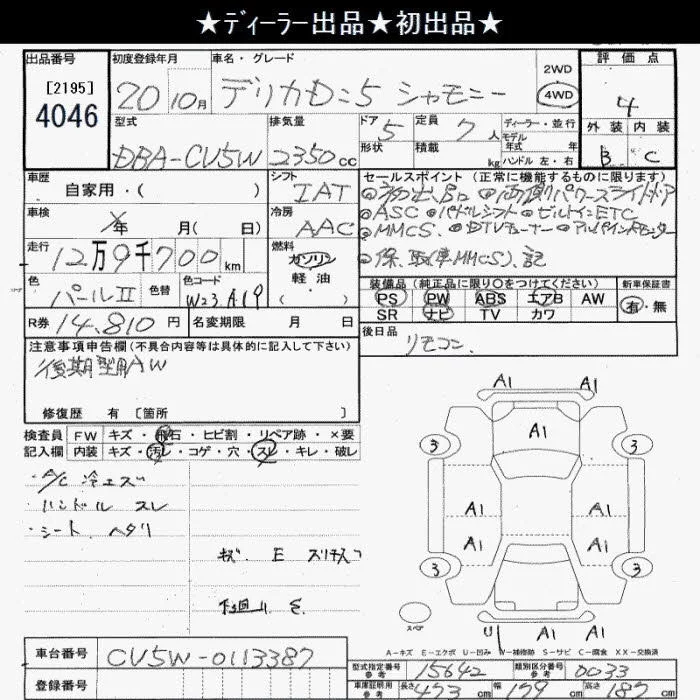 ★ディーラー出品★初出品★
出品番号 初度登録年月 車名・グレード 評価点
[2195]
4046
20 10月 デリカD:5 シャモニー
2WD
4WD
4
型式 排気量 ドア 定員 ディーラー・並行
5 7人 モデル年式 年式
外装 内装
DBA-CV5W 2350cc 形状 積載 kg ハンドル 左・右
B C
車歴 シフト セールスポイント (正常に機能するものに限ります)
自家用・( ) IAT
◎初出品 ◎両側パワースライドドア
車検 冷房
◎ASC ◎パドルシフト ◎ビルトインETC
年 月(日) AAC
◎MMCS ◎DTVチューナー ◎アルパインRモニター
走行 燃料
12万9千700km ガソリン
◎保、取(車、MMCS)、記
軽・油
( )
色 色替 色コード
パールII W23 A19
装備品 (純正品に限り○をつけてください) 新車保証書
PS PW ABS エアB AW 有・無
SR ナビ TV カワ
R券 14,810円 名変期限 月 日
後日品
リモコン
注意事項申告欄 (不具合内容等は具体的に記入して下さい)
後期型用AW
修復歴 有 [箇所 ]
検査員 FW キズ・飛石・ヒビ割・リペア跡・×要
記入欄 内装 キズ・汚レ・コゲ・穴・スレ・キレ・破レ
・A/C 冷エズ
・ハンドル スレ
・シート ヘタリ
キズ、E
A1 A1
3 A1 3
A1 A1
A1 A1
3 3
スペア
U A1 A1
A-キズ E-エクボ U-凹み W-補修跡 S-サビ C-腐食 XX-交換済
車台番号 CV5W-0113387
登録番号
型式指定番号 参考 15642 類別区分番号 参考 0033
車庫証明用 参考 長さ 473cm 幅 179cm 高さ 187cm